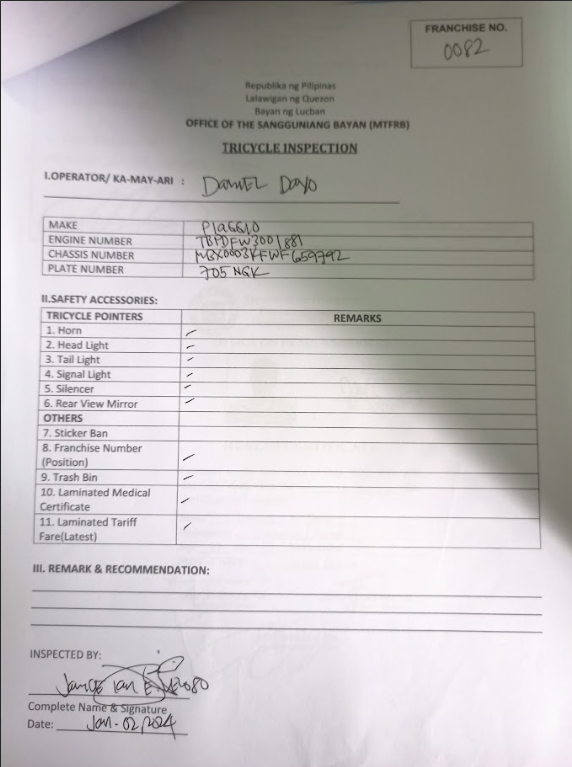 FRANCHISE NO.
0082
Republika ng Pilipinas
Lalawigan ng Quezon
Bayan ng Lucban
OFFICE OF THE SANGGUNIANG BAYAN (MTFRB)
TRICYCLE INSPECTION
I.OPERATOR/ KA-MAY-ARI : DANIEL DAYO
MAKE PIAGGIO
ENGINE NUMBER
CHASSIS NUMBER
PLATE NUMBER 705 NGK
II.SAFETY ACCESSORIES:
TRICYCLE POINTERS REMARKS
1. Horn
2. Head Light
3. Tail Light
4. Signal Light
5. Silencer
6. Rear View Mirror
OTHERS
7. Sticker Ban
8. Franchise Number
(Position)
9. Trash Bin
10. Laminated Medical
Certificate
11. Laminated Tariff
Fare(Latest)
III. REMARK & RECOMMENDATION:
INSPECTED BY:
Complete Name & Signature
Date: Jan. 02, 2024